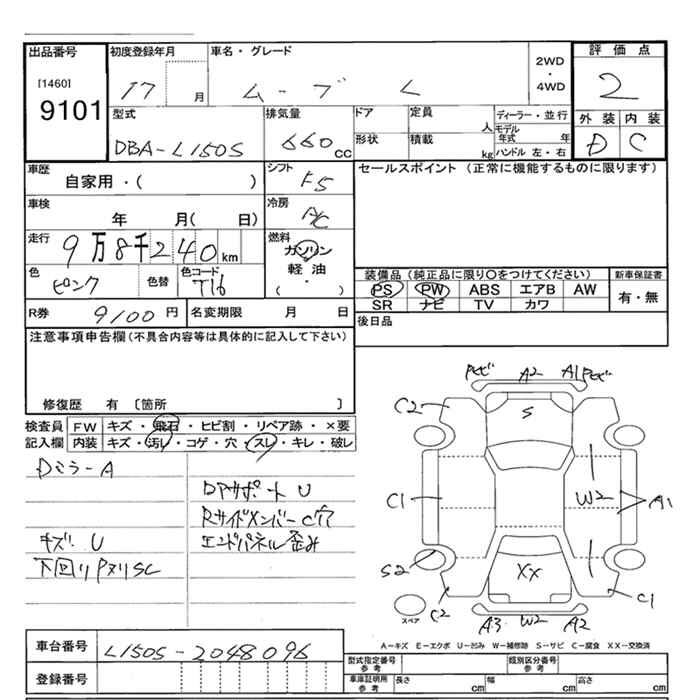 出品番号
[1460]
9101
初度登録年月
17 月
車名・グレード
ムーブ L
2WD
・
4WD
評価点
2
外装 内装
D C
型式
DBA-L150S
排気量
660 cc
ドア
形状
定員 人
積載 kg
ディーラー・並行
モデル年式 年
ハンドル 左・右
車歴
自家用・( )
シフト
F5
セールスポイント (正常に機能するものに限ります)
車検
年 月( 日)
冷房
AC
走行
9万8千240km
燃料
ガソリン
軽油
・
( )
色
ピンク
色替
色コード
T16
装備品 (純正品に限り〇をつけてください)
PS PW ABS エアB AW
SR ナビ TV カワ
新車保証書
有・無
R券 9100円
名変期限 月 日
後日品
注意事項申告欄(不具合内容等は具体的に記入して下さい)
修復歴 有 [箇所 ]
検査員
記入欄
FW キズ・飛石・ヒビ割・リペア跡・×要
内装 キズ・汚れ・コゲ・穴・スレ・キレ・破レ
Dミラー A
Dアサポート U
RサイドメンバーC穴
キズ.U
エンドパネル歪み
下回りPヌリSC
トビ A2 A1トビ
C2 S
C1 W2 A1
S2 XX
C2 C1
スペア
A3 W2 A2
A－キズ E－エクボ U－凹み W－補修跡 S－サビ C－腐食 XX－交換済
車台番号
L150S-2048096
登録番号
型式指定番号
参考
類別区分番号
参考
車庫証明用
参考
長さ cm 幅 cm 高さ cm